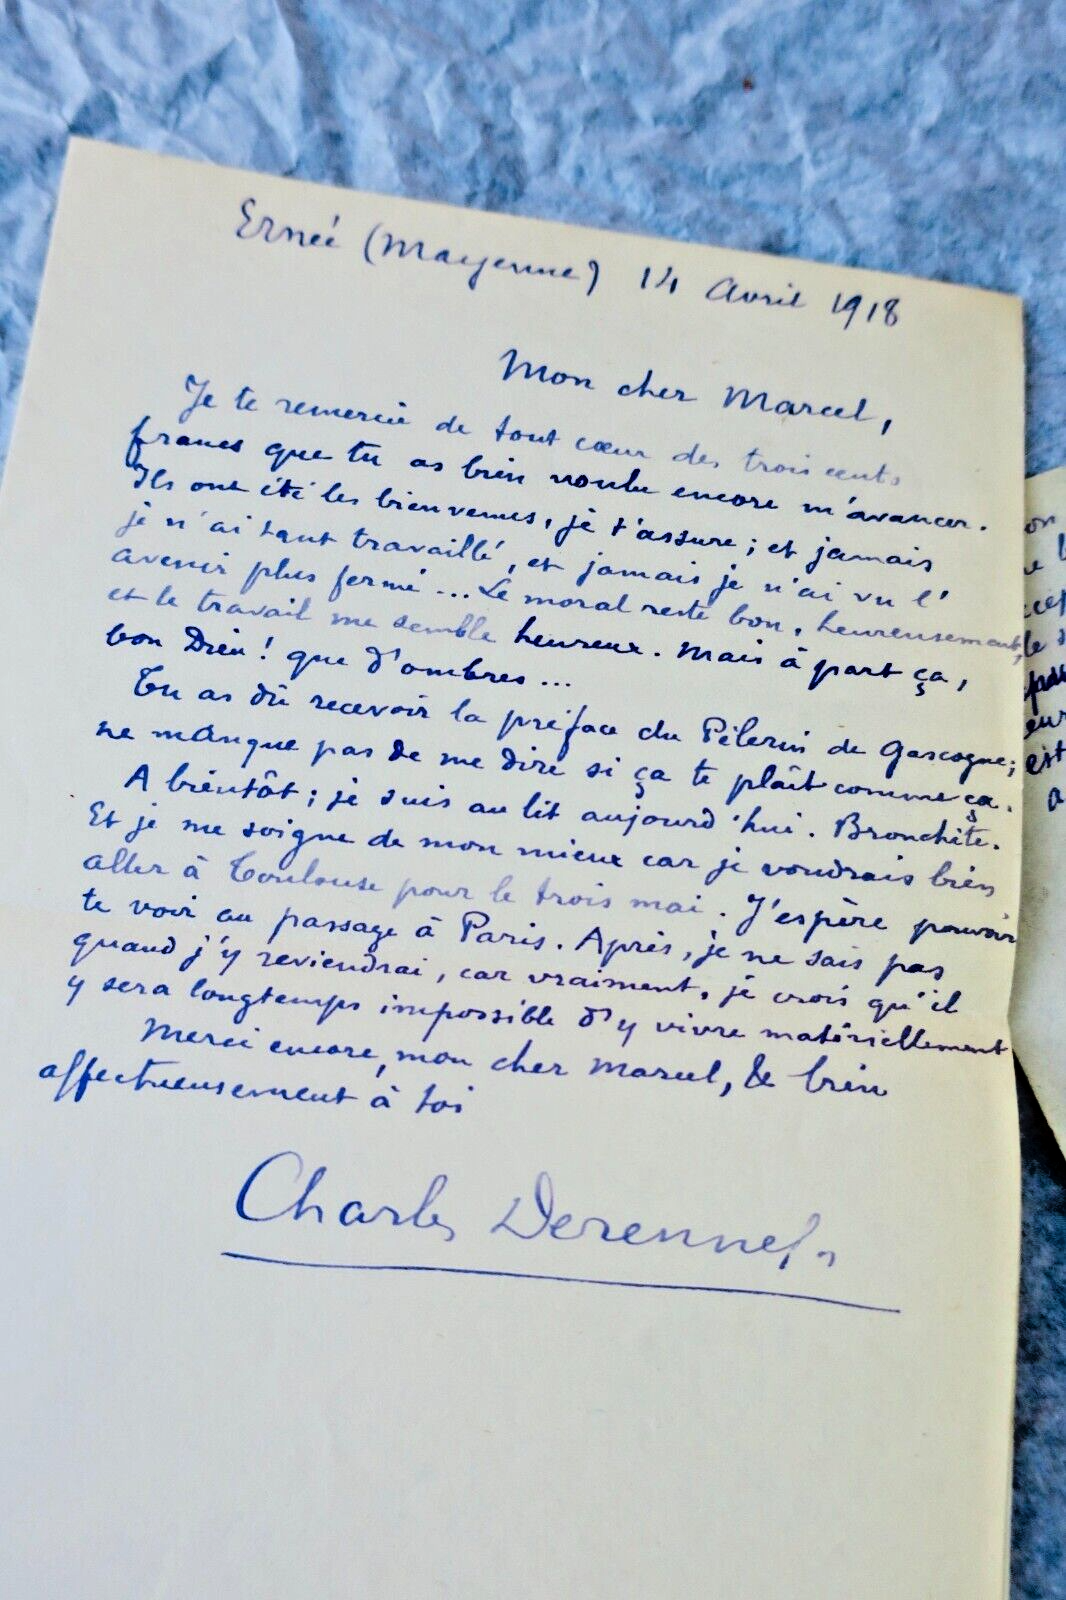 Ernée (Mayenne) 14 Avril 1918
Mon cher Marcel,
Je te remercie de tout cœur des trois cents
francs que tu as bien voulu encore m'avancer.
Ils ont été les bienvenus, je t'assure ; et jamais
je n'ai tant travaillé, et jamais je n'ai vu l'
avenir plus fermé ... Le moral reste bon, heureusement,
et le travail me semble heureux. Mais à part ça,
bon Dieu ! que d'ombres ...
Tu as dû recevoir la préface du Pèlerin de Gascogne ;
ne manque pas de me dire si ça te plaît comme ça.
A bientôt ; je suis au lit aujourd'hui. Bronchite.
Et je me soigne de mon mieux car je voudrais bien
aller à Toulouse pour le trois mai. J'espère pouvoir
te voir au passage à Paris. Après, je ne sais pas
quand j'y reviendrai, car vraiment, je crois qu'il
y sera longtemps impossible d'y vivre matériellement
Merci encore, mon cher Marcel, & bien
affectueusement à toi
Charles Derennes
on
le
est
a